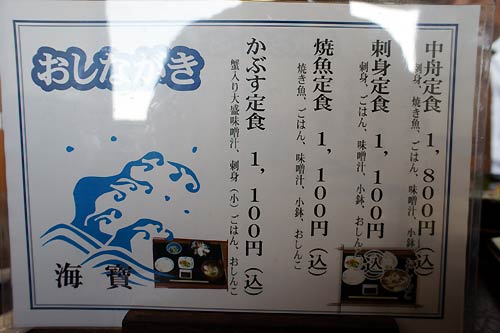 おしながき
中舟定食 1,800円(込)
刺身、焼き魚、ごはん、味噌汁、小鉢、
刺身定食 1,100円(込)
刺身、ごはん、味噌汁、小鉢、おしんこ
焼魚定食 1,100円(込)
焼き魚、ごはん、味噌汁、小鉢、おしんこ
かぶす定食 1,100円(込)
蟹入り大盛味噌汁、刺身(小)ごはん、おしんこ
海寶